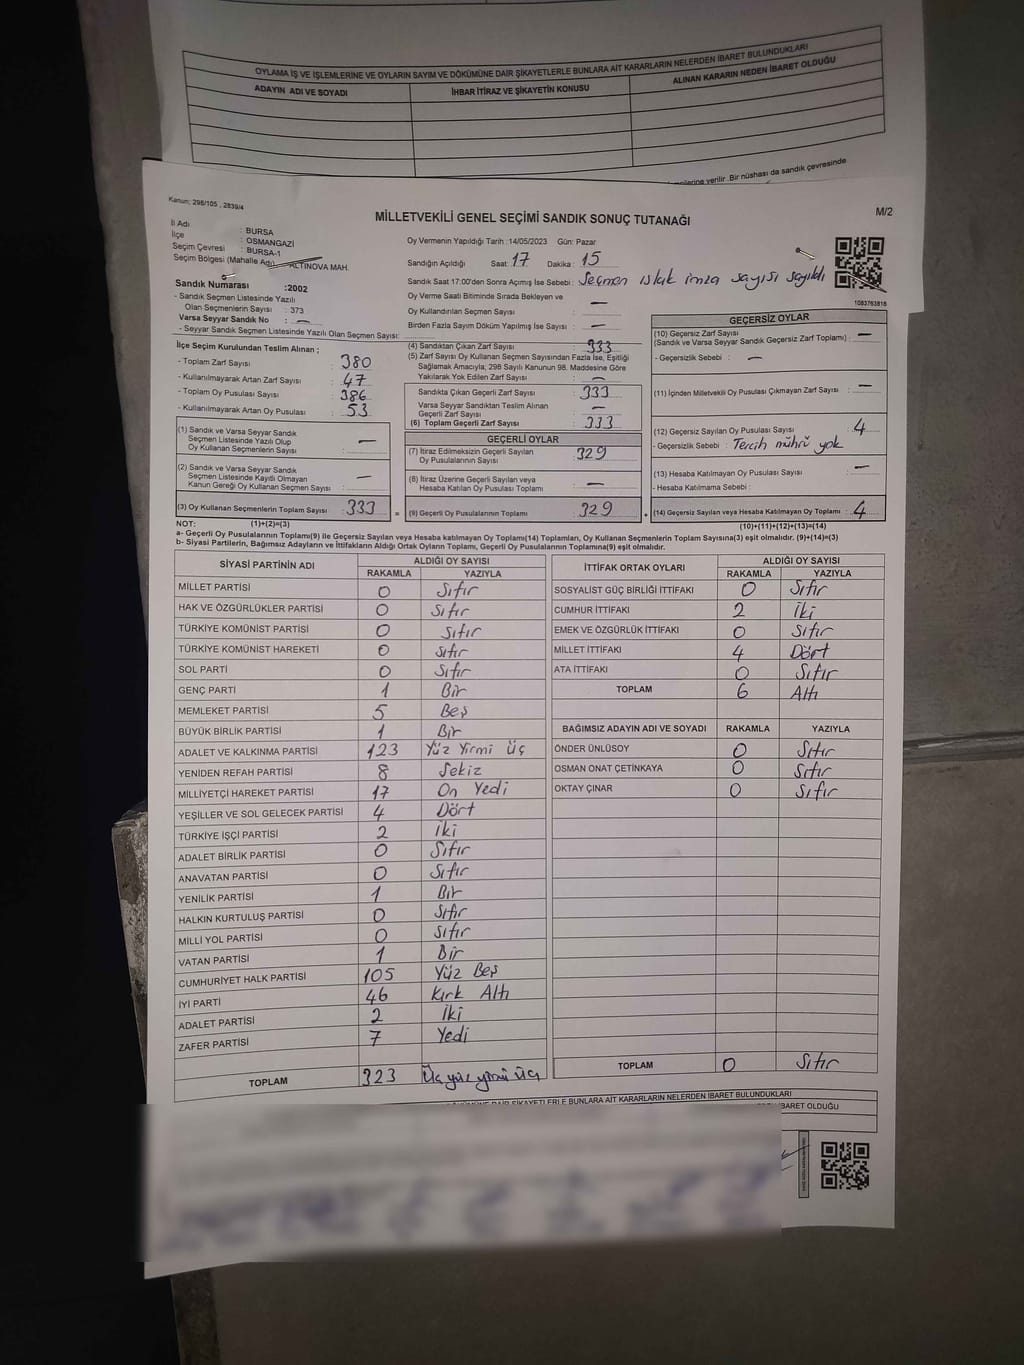 OYLAMA İŞ VE İŞLEMLERİNE VE OYLARIN SAYIM VE DÖKÜMÜNE DAİR ŞİKAYETLERLE BUNLARA AİT KARARLARIN NELERDEN İBARET BULUNDUKLARI
ADAYIN ADI VE SOYADI İHBAR İTİRAZ VE ŞİKAYETİN KONUSU ALINAN KARARIN NEDEN İBARET OLDUĞU
verilir. Bir nüshası da sandık çevresinde
Kanun; 298/105 , 2839/4
MİLLETVEKİLİ GENEL SEÇİMİ SANDIK SONUÇ TUTANAĞI
M/2
İl Adı : BURSA
İlçe : OSMANGAZİ
Seçim Çevresi : BURSA-1
Seçim Bölgesi (Mahalle Adı) ALTINOVA MAH.
Oy Vermenin Yapıldığı Tarih :14/05/2023 Gün: Pazar
Sandığın Açıldığı Saat: 17 Dakika : 15
Sandık Saat 17:00'den Sonra Açımış İse Sebebi : Seçmen ıslak imza sayısı sayıldı
1083763818
Sandık Numarası :2002
- Sandık Seçmen Listesinde Yazılı
Olan Seçmenlerin Sayısı : 373
Varsa Seyyar Sandık No : —
- Seyyar Sandık Seçmen Listesinde Yazılı Olan Seçmen Sayısı:
Oy Verme Saati Bitiminde Sırada Bekleyen ve
Oy Kullandırılan Seçmen Sayısı : —
Birden Fazla Sayım Döküm Yapılmış İse Sayısı : —
İlçe Seçim Kurulundan Teslim Alınan ;
- Toplam Zarf Sayısı : 380
- Kullanılmayarak Artan Zarf Sayısı : 47
- Toplam Oy Pusulası Sayısı : 386
- Kullanılmayarak Artan Oy Pusulası : 53
(1) Sandık ve Varsa Seyyar Sandık
Seçmen Listesinde Yazılı Olup
Oy Kullanan Seçmenlerin Sayısı : —
(2) Sandık ve Varsa Seyyar Sandık
Seçmen Listesinde Kayıtlı Olmayan
Kanun Gereği Oy Kullanan Seçmen Sayısı : —
(3) Oy Kullanan Seçmenlerin Toplam Sayısı : 333
(4) Sandıktan Çıkan Zarf Sayısı : 333
(5) Zarf Sayısı Oy Kullanan Seçmen Sayısından Fazla İse, Eşitliği
Sağlamak Amacıyla; 298 Sayılı Kanunun 98. Maddesine Göre
Yakılarak Yok Edilen Zarf Sayısı : —
Sandıkta Çıkan Geçerli Zarf Sayısı : 333
Varsa Seyyar Sandıktan Teslim Alınan
Geçerli Zarf Sayısı : —
(6) Toplam Geçerli Zarf Sayısı : 333
GEÇERLİ OYLAR
(7) İtiraz Edilmeksizin Geçerli Sayılan
Oy Pusulalarının Sayısı : 329
(8) İtiraz Üzerine Geçerli Sayılan veya
Hesaba Katılan Oy Pusulası Toplamı : —
(9) Geçerli Oy Pusulalarının Toplamı : 329
GEÇERSİZ OYLAR
(10) Geçersiz Zarf Sayısı
(Sandık ve Varsa Seyyar Sandık Geçersiz Zarf Toplamı) : —
- Geçersizlik Sebebi : —
(11) İçinden Milletvekili Oy Pusulası Çıkmayan Zarf Sayısı : —
(12) Geçersiz Sayılan Oy Pusulası Sayısı : 4
- Geçersizlik Sebebi : Tercih mührü yok
(13) Hesaba Katılmayan Oy Pusulası Sayısı : —
- Hesaba Katılmama Sebebi :
(14) Geçersiz Sayılan veya Hesaba Katılmayan Oy Toplamı : 4
NOT: (1)+(2)=(3) (10)+(11)+(12)+(13)=(14)
a- Geçerli Oy Pusulalarının Toplamı(9) ile Geçersiz Sayılan veya Hesaba Katılmayan Oy Toplamı(14) Toplamları, Oy Kullanan Seçmenlerin Toplam Sayısına(3) eşit olmalıdır. (9)+(14)=(3)
b- Siyasi Partilerin, Bağımsız Adayların ve İttifakların Aldığı Ortak Oyların Toplamı, Geçerli Oy Pusulalarının Toplamına(9) eşit olmalıdır.
SİYASİ PARTİNİN ADI ALDIĞI OY SAYISI
RAKAMLA YAZIYLA
MİLLET PARTİSİ 0 Sıfır
HAK VE ÖZGÜRLÜKLER PARTİSİ 0 Sıfır
TÜRKİYE KOMÜNİST PARTİSİ 0 Sıfır
TÜRKİYE KOMÜNİST HAREKETİ 0 Sıfır
SOL PARTİ 0 Sıfır
GENÇ PARTİ 1 Bir
MEMLEKET PARTİSİ 5 Beş
BÜYÜK BİRLİK PARTİSİ 1 Bir
ADALET VE KALKINMA PARTİSİ 123 Yüz Yirmi Üç
YENİDEN REFAH PARTİSİ 8 Sekiz
MİLLİYETÇİ HAREKET PARTİSİ 17 On Yedi
YEŞİLLER VE SOL GELECEK PARTİSİ 4 Dört
TÜRKİYE İŞÇİ PARTİSİ 2 İki
ADALET BİRLİK PARTİSİ 0 Sıfır
ANAVATAN PARTİSİ 0 Sıfır
YENİLİK PARTİSİ 1 Bir
HALKIN KURTULUŞ PARTİSİ 0 Sıfır
MİLLİ YOL PARTİSİ 0 Sıfır
VATAN PARTİSİ 1 Bir
CUMHURİYET HALK PARTİSİ 105 Yüz Beş
İYİ PARTİ 46 Kırk Altı
ADALET PARTİSİ 2 İki
ZAFER PARTİSİ 7 Yedi
TOPLAM 323 Üç yüz yirmi üç
İTTİFAK ORTAK OYLARI ALDIĞI OY SAYISI
RAKAMLA YAZIYLA
SOSYALİST GÜÇ BİRLİĞİ İTTİFAKI 0 Sıfır
CUMHUR İTTİFAKI 2 İki
EMEK VE ÖZGÜRLÜK İTTİFAKI 0 Sıfır
MİLLET İTTİFAKI 4 Dört
ATA İTTİFAKI 0 Sıfır
TOPLAM 6 Altı
BAĞIMSIZ ADAYIN ADI VE SOYADI RAKAMLA YAZIYLA
ÖNDER ÜNLÜSOY 0 Sıfır
OSMAN ONAT ÇETİNKAYA 0 Sıfır
OKTAY ÇINAR 0 Sıfır
TOPLAM 0 Sıfır
DÖKÜMÜNE DAİR ŞİKAYETLERLE BUNLARA AİT KARARLARIN NELERDEN İBARET BULUNDUKLARI
İBARET OLDUĞU